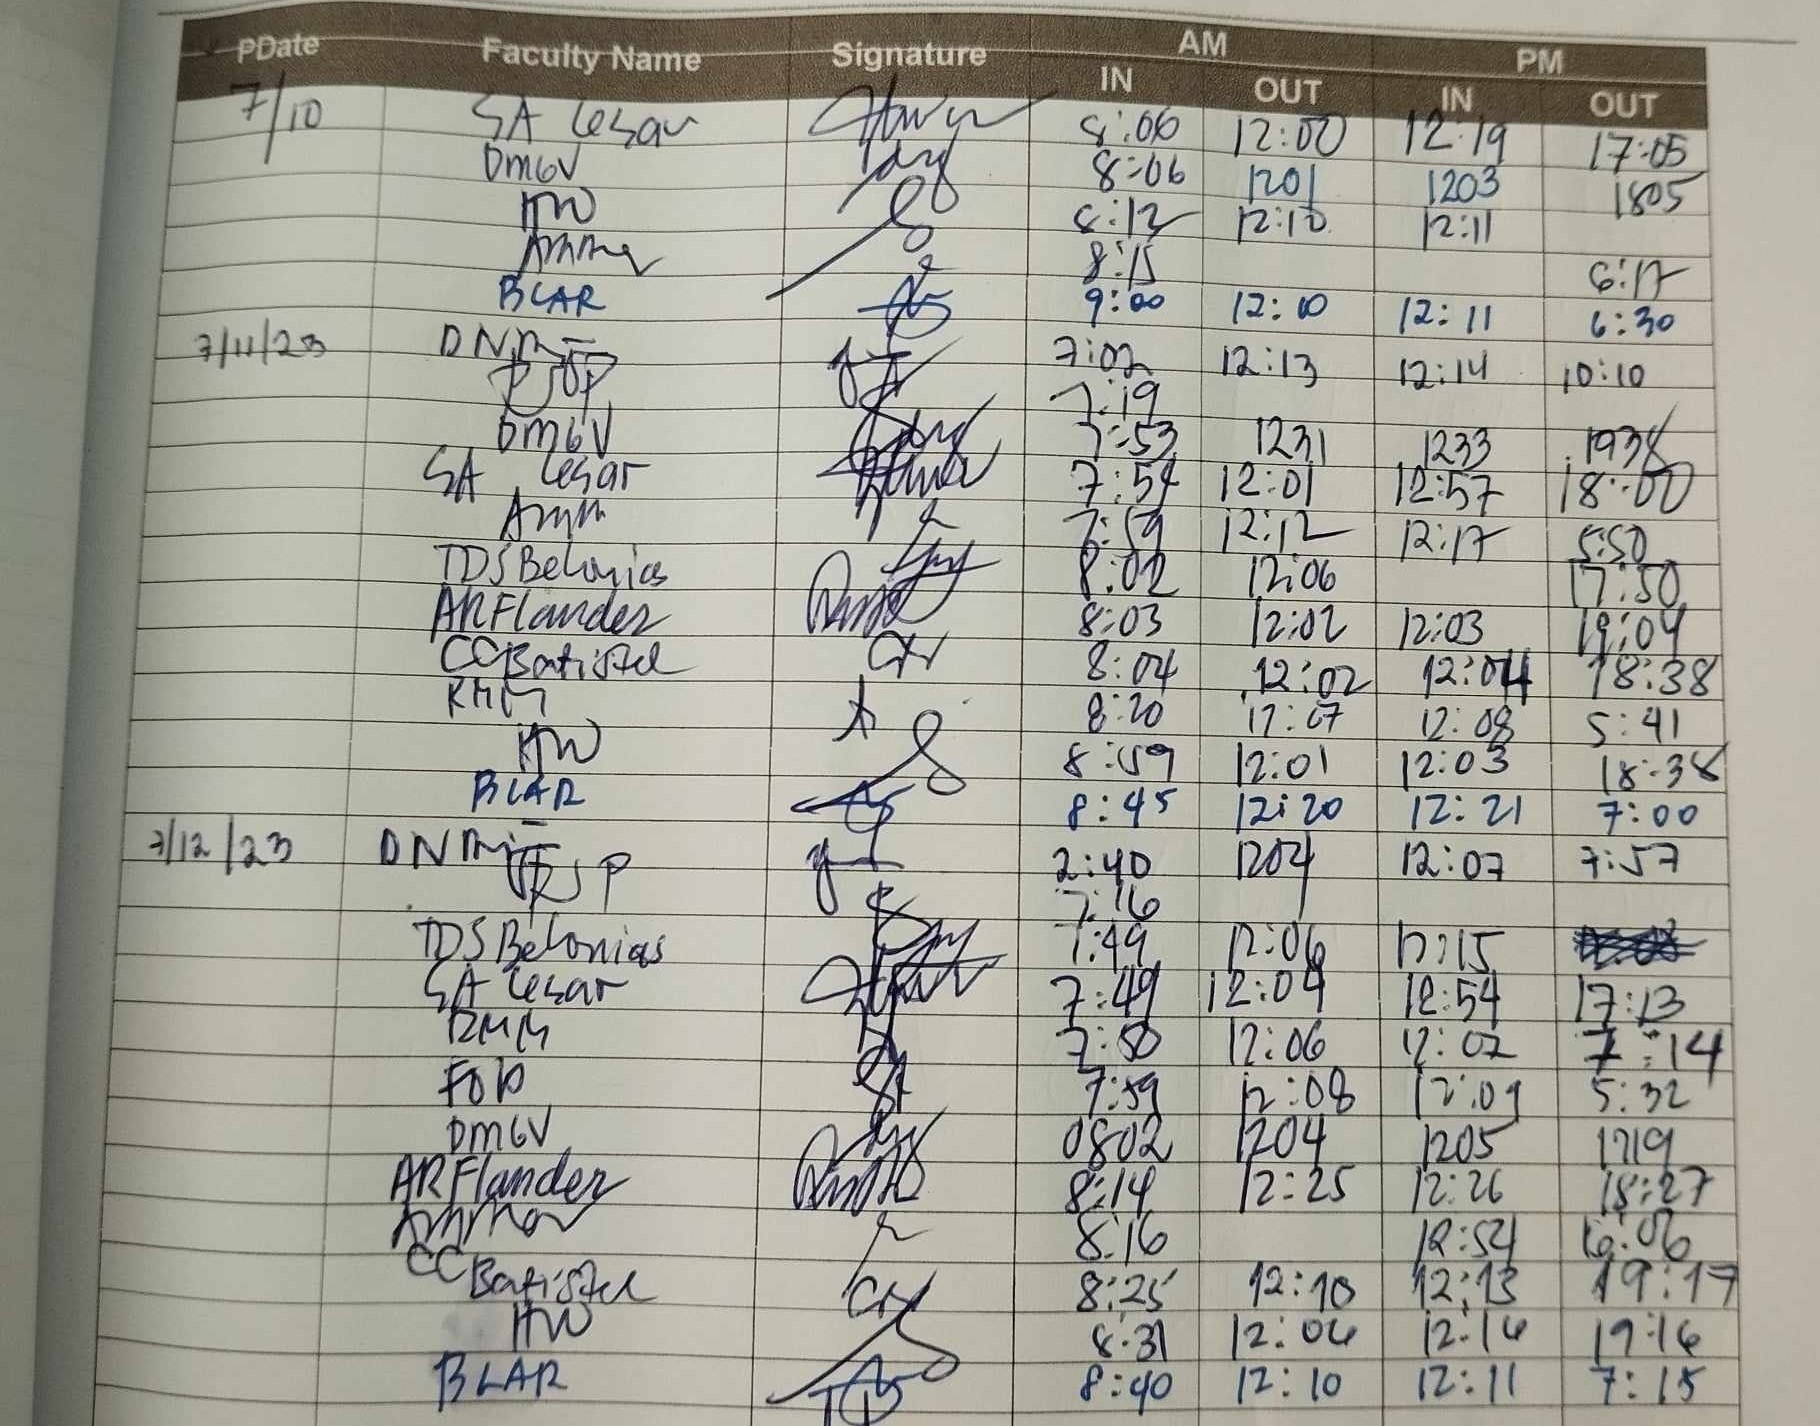 PDate Faculty Name Signature AM PM
IN OUT IN OUT
7/10 SA Cesar 8:06 12:00 12:19 17:05
DMGV 8:06 1201 1203 1805
HW 8:12 12:10 12:11
8:15 6:17
BLAR 9:00 12:10 12:11 6:30
7/11/23 7:02 12:13 12:14 10:10
7:19
DMGV 7:53 1231 1233 1938
SA Cesar 7:54 12:01 12:57 18:00
7:59 12:12 12:17 5:50
TDS Belonias 8:02 12:06 17:50
ARFlander 8:03 12:02 12:03 19:04
CCBatistel 8:04 12:02 12:04 18:38
RMM 8:20 12:07 12:08 5:41
HW 8:59 12:01 12:03 18:38
BLAR 8:45 12:20 12:21 7:00
7/12/23 2:40 1204 12:07 7:57
7:16
TDS Belonias 7:49 12:06
SA Cesar 7:49 12:04 12:54 17:13
RMM 7:50 12:06 12:07 7:14
7:59 12:08 12:09 5:32
DMGV 0802 1204 1205 1719
ARFlander 8:14 12:25 12:26 18:27
8:16 12:54
CCBatistel 8:25 12:10 12:13 19:17
HW 8:31 12:06 12:16 19:16
BLAR 8:40 12:10 12:11 7:15